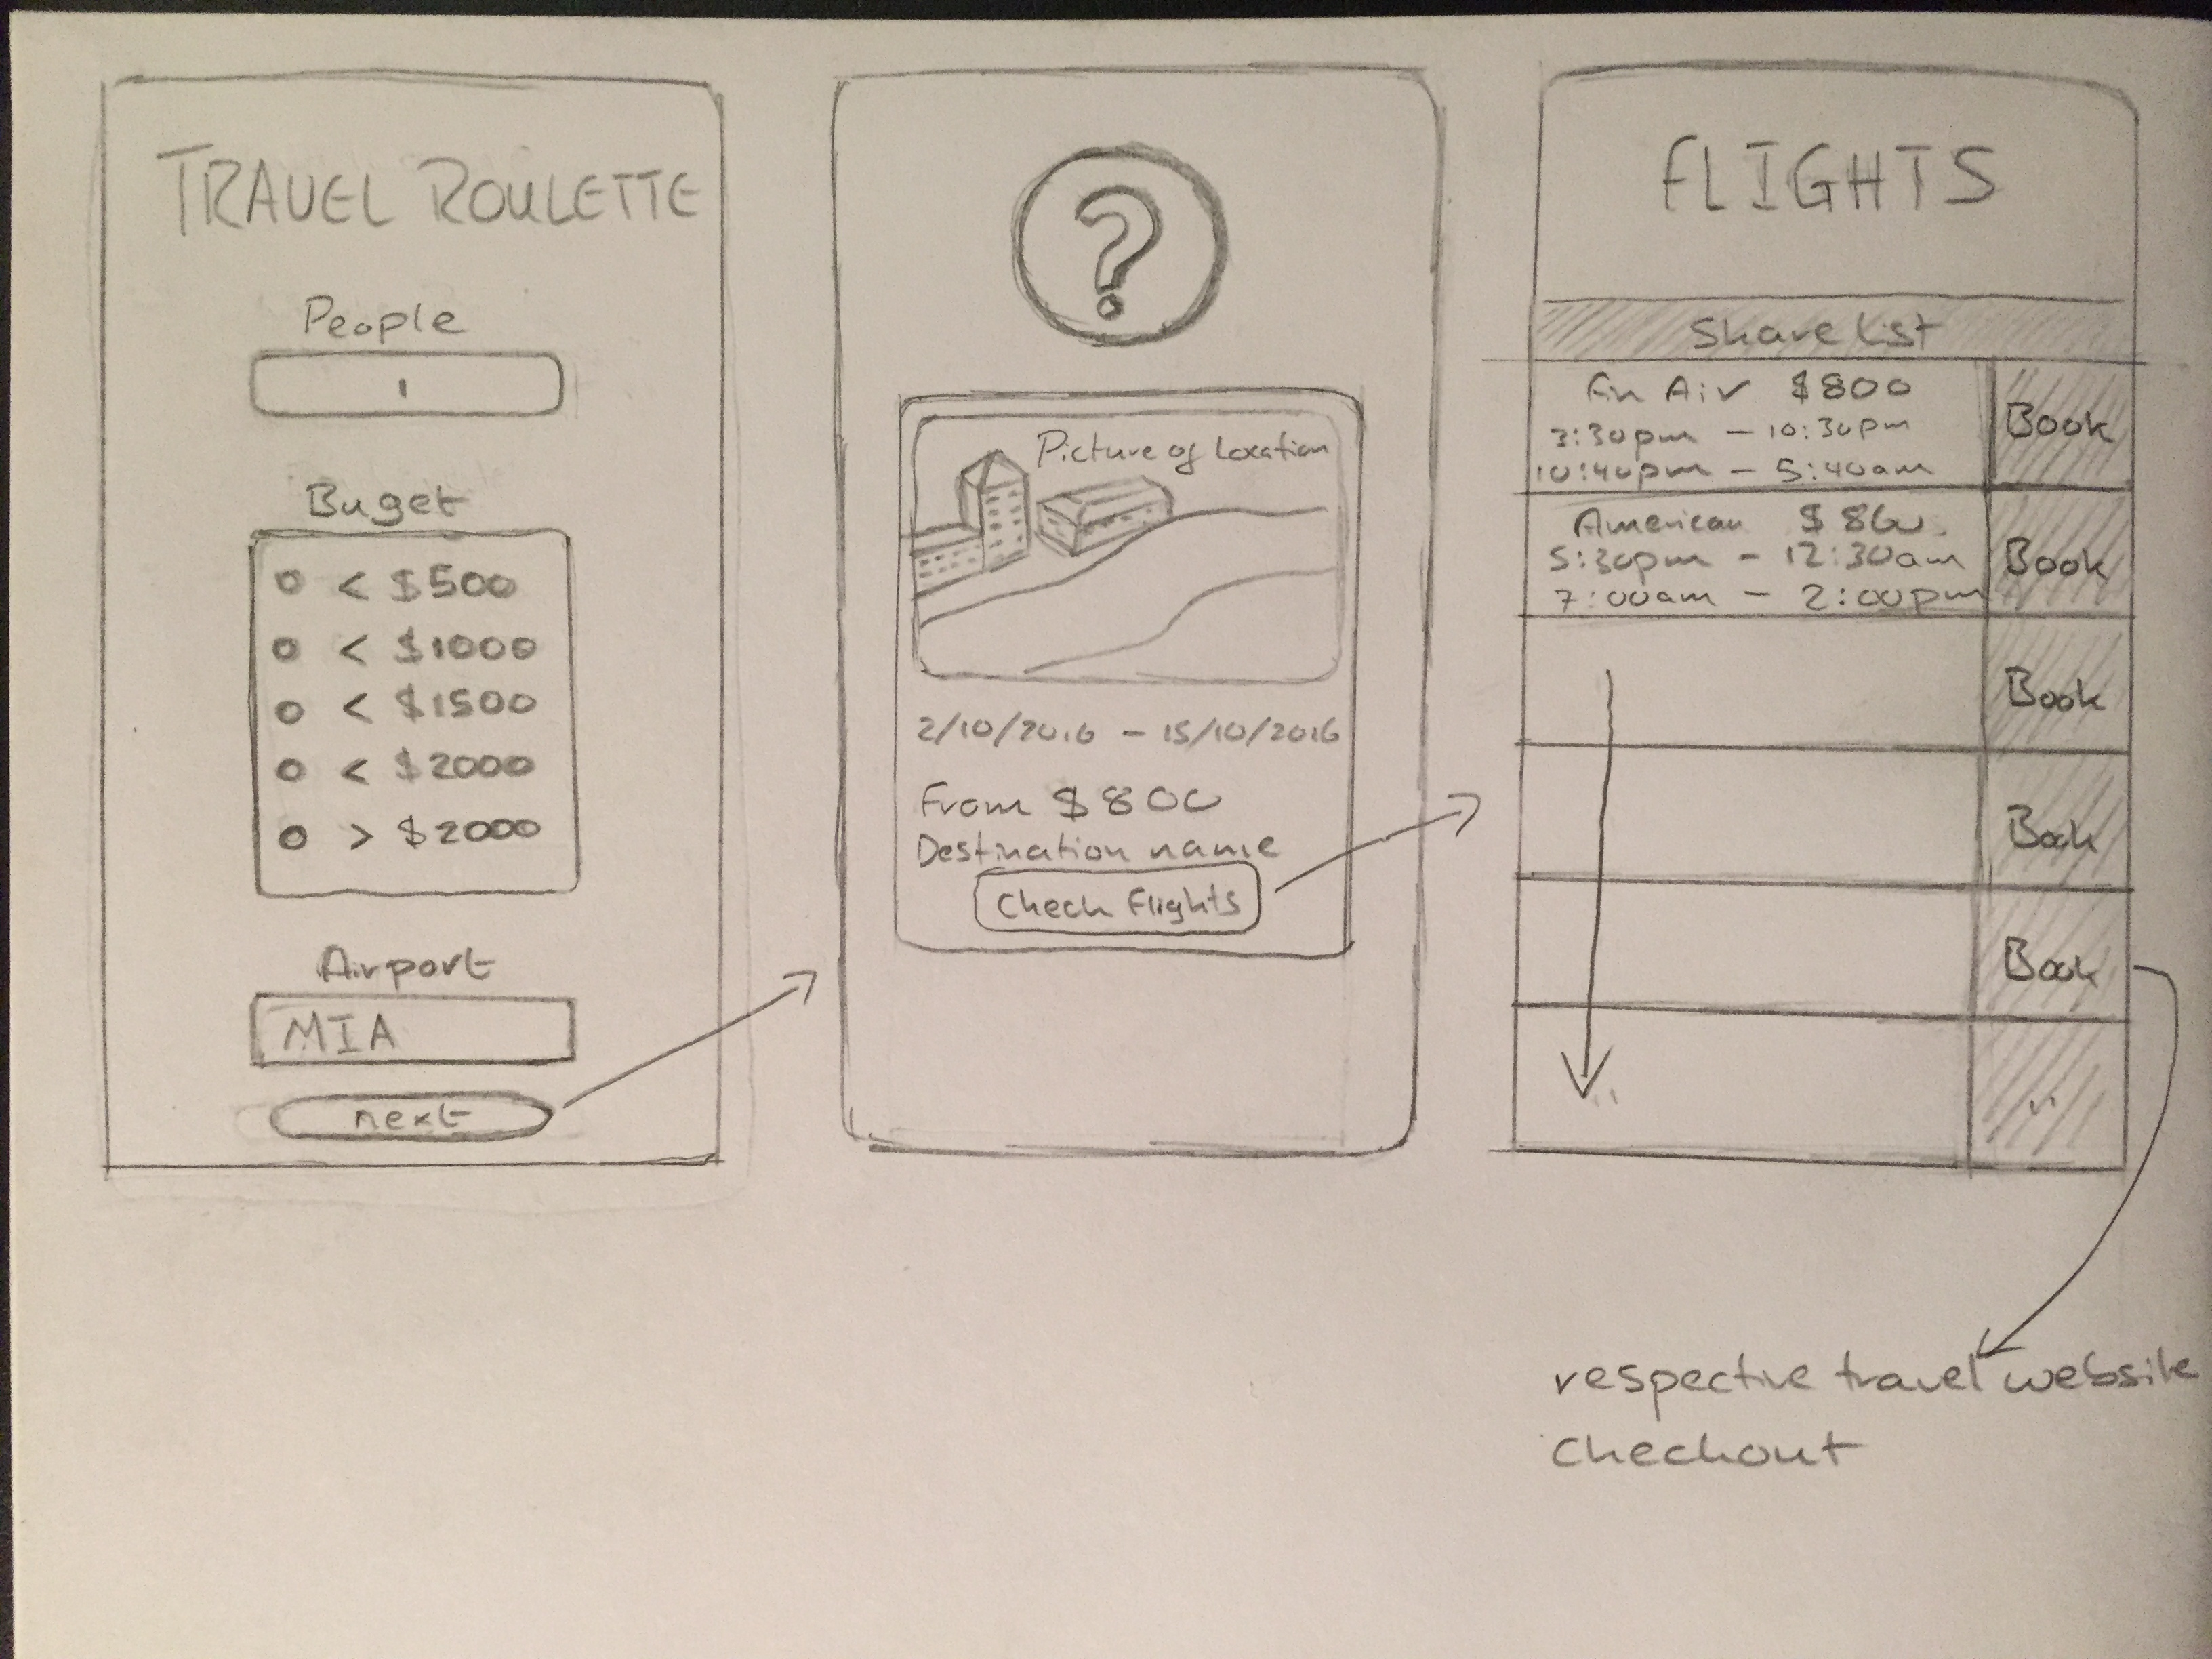 TRAVEL ROULETTE
People
1
Buget
< $500
< $1000
< $1500
< $2000
> $2000
Airport
MIA
next
?
Picture of Location
2/10/2016 - 15/10/2016
From $800
Destination name
Check flights
FLIGHTS
Share list
Fin Air $800
3:30pm - 10:30pm
10:40pm - 5:40am
Book
American
5:30pm - 12:30am
7:00am - 2:00pm
Book
Book
Book
Book
respective travel website
checkout